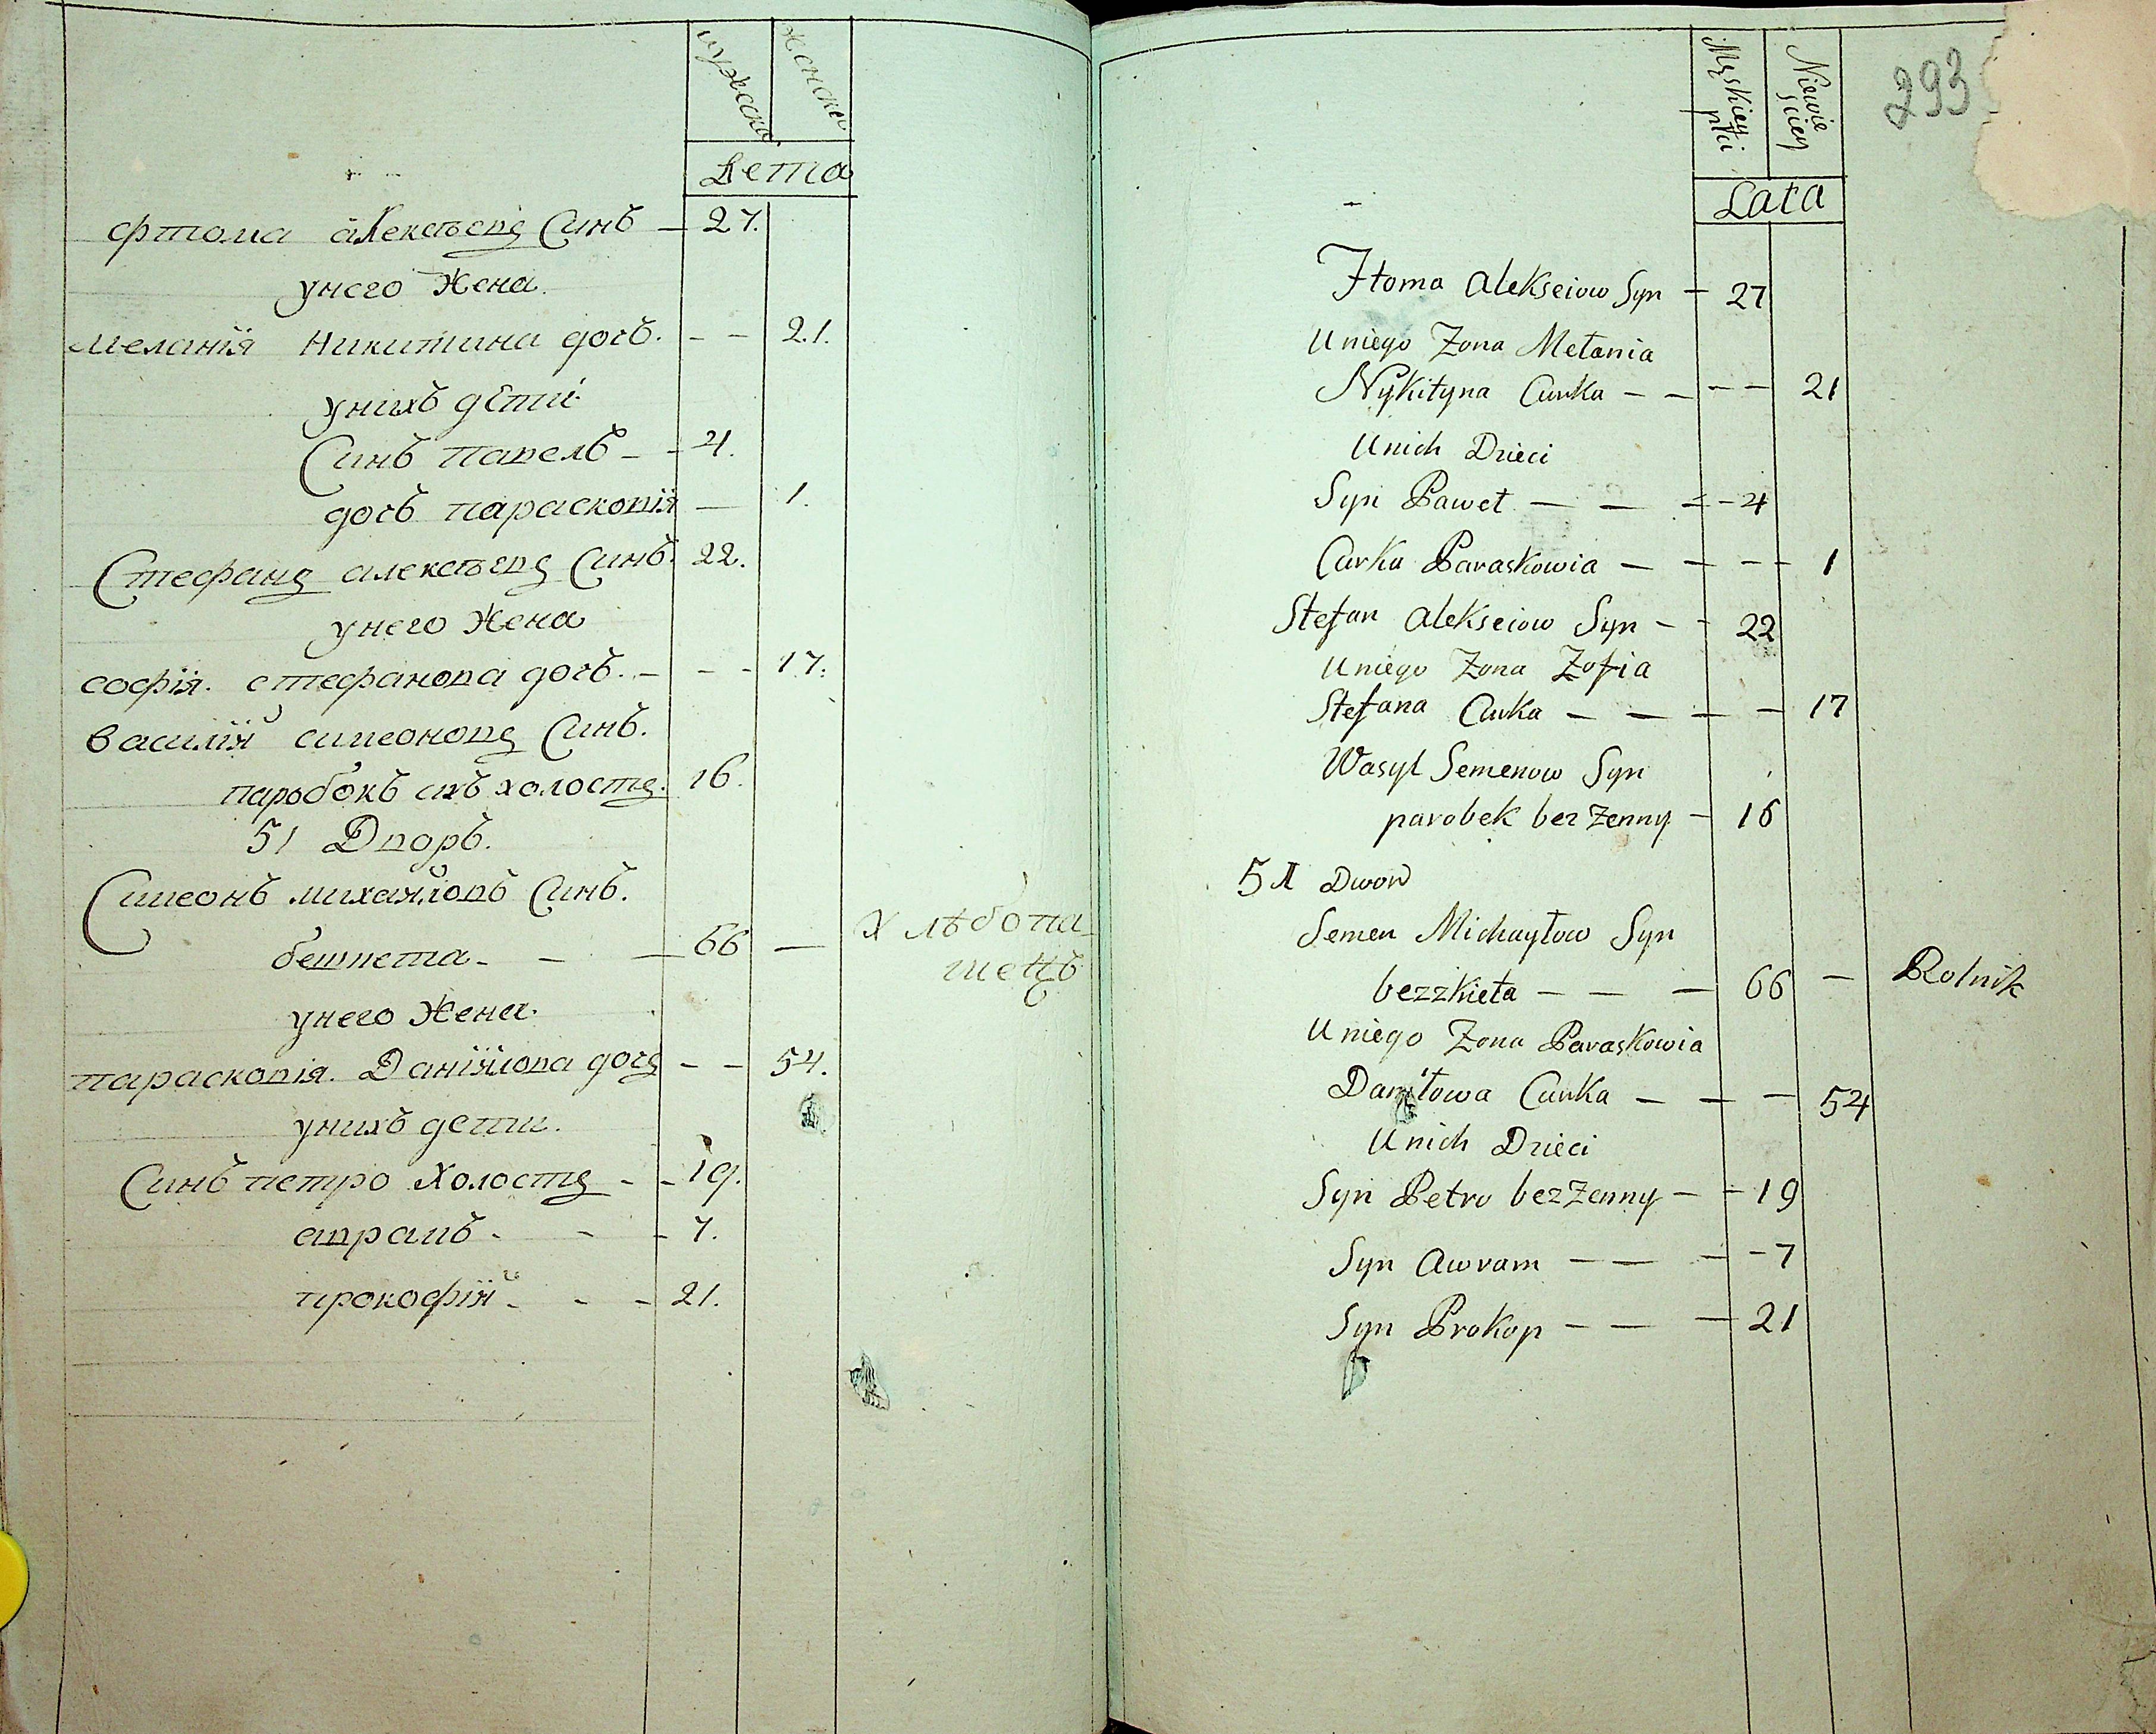 мужеска
женска
Лета
фтома алексѣевъ Синъ — 27.
унего Жена.
меланїя Никитина дочъ. - - 21.
унихъ дѣти
Синъ павелъ - - 4.
дочъ парасковїя — 1.
Стефанъ алексѣевъ Синъ. 22.
унего Жена
софїя. стефанова дочъ. - - - 17.
василїй симеоновъ Синъ.
паробокъ холостъ. 16.
51 Дворъ.
Симеонъ михайловъ Синъ.
бешкета - - — 66 — Хлѣбопа-
шецъ
унего Жена.
парасковїя. Данїйлова дочъ - - 54.
унихъ дети.
Синъ петро Холостъ - - 19.
аврамъ - - - 7.
прокофїй - - - 21.
293
Męskiey płci
Niewie sciey
Lata
Ftoma Alekseiow Syn — 27
Uniego Zona Mełania
Nykityna Curka — — - - 21
Unich Dzieci
Syn Paweł — — - - 4
Curka Paraskowia — — - - 1
Stefan Alekseiow Syn - - 22
Uniego Zona Zofia
Stefana Curka — — — — 17
Wasyl Semenow Syn
parobek bez Zenny — 16
51 Dwor
Semen Michayłow Syn
bezzkieta — — — 66 — Rolnik
Uniego Zona Paraskowia
Daniłowa Curka — — — 54
Unich Dzieci
Syn Petro bez Zenny — - 19
Syn Awram — — — - 7
Syn Prokop — — — 21